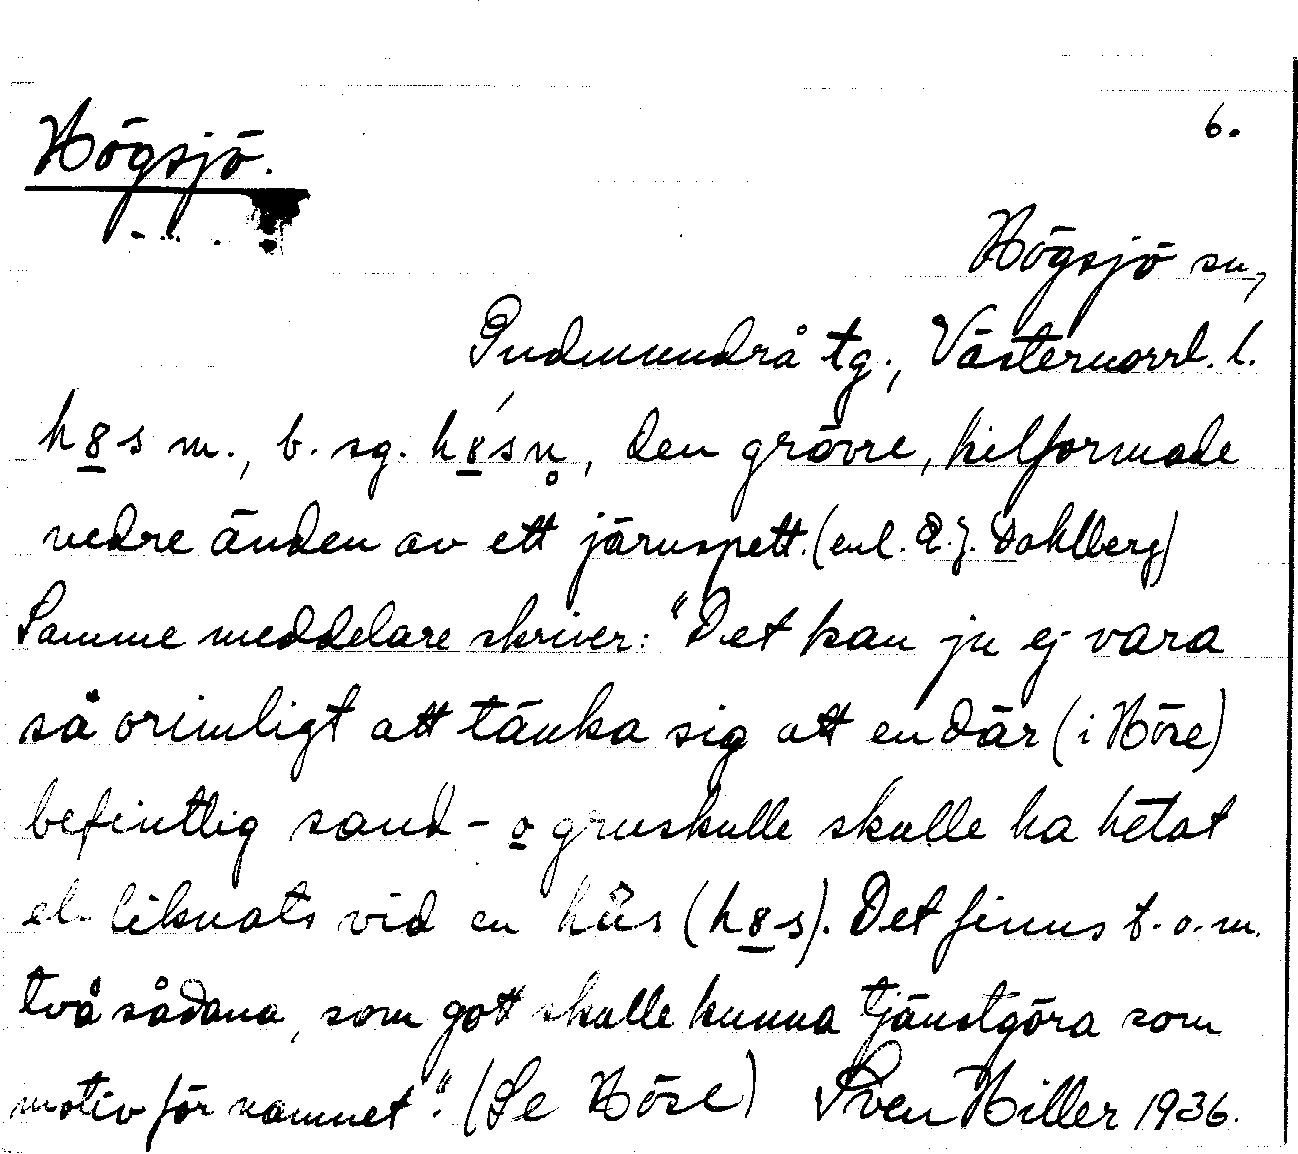 Högsjö.
6.
Högsjö sn,
Gudmundrå tg., Västernorrl. l.
h8s m., b. sg. h8́sn̥, den grövre, kilformade
nedre änden av ett järnspett. (enl. E. J. Dahlberg)
Samme meddelare skriver: "Det kan ju ej vara
så orimligt att tänka sig att en där (i Höse)
befintlig sand- o gruskulle skulle ha hetat
el. liknats vid en hüs (h8s). Det finns t. o. m.
två sådana, som gott skulle kunna tjänstgöra som
motiv för namnet". (Se Höse) Sven Hiller 1936.